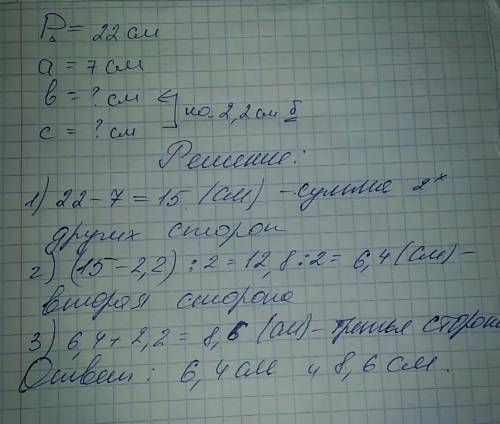 P△ = 22 см
a = 7 см
в = ? см
на 2,2 см б
с = ? см
Решение:
1) 22 - 7 = 15 (см) - сумма 2х
других сторон
2) (15 - 2,2) : 2 = 12,8 : 2 = 6,4 (см) -
вторая сторона
3) 6,4 + 2,2 = 8,6 (см) - третья сторона
Ответ: 6,4 см и 8,6 см.